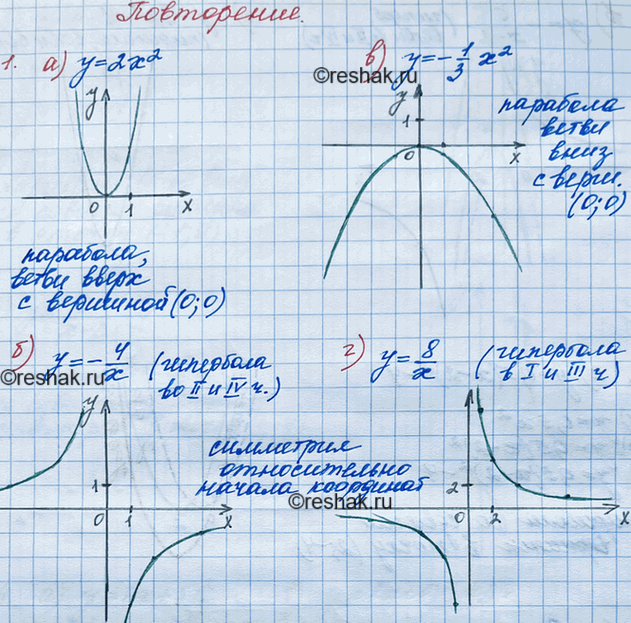 Повторение.
1. а) y=2x²
y
0 1 x
парабола,
ветви вверх
с вершиной (0;0)
в) y=-1/3 x²
©reshak.ru
y
1
0 x
парабола
ветви
вниз
с верш.
(0;0)
б) y=-4/x (гипербола
во II и IV ч.)
©reshak.ru
y
1
0 1 x
симметрия
относительно
начала координат
г) y=8/x (гипербола
в I и III ч)
©reshak.ru
2
0 2 x